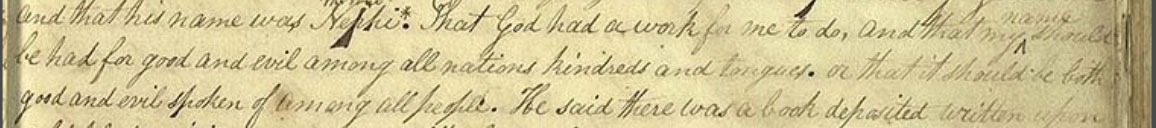 and that his name was Nephi* That God had a work for me to do, and that my name should
be had for good and evil among all nations kindreds and tongues. or that it should be both
good and evil spoken of among all people. He said there was a book deposited written upon